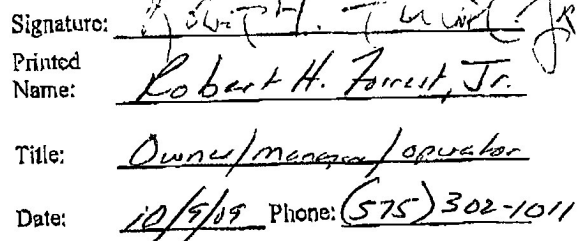 Signature: Robert H. Forrest Jr
Printed
Name: Robert H. Forrest, Jr.
Title: Owner/manager/operator
Date: 10/9/09 Phone: (575) 302-1011